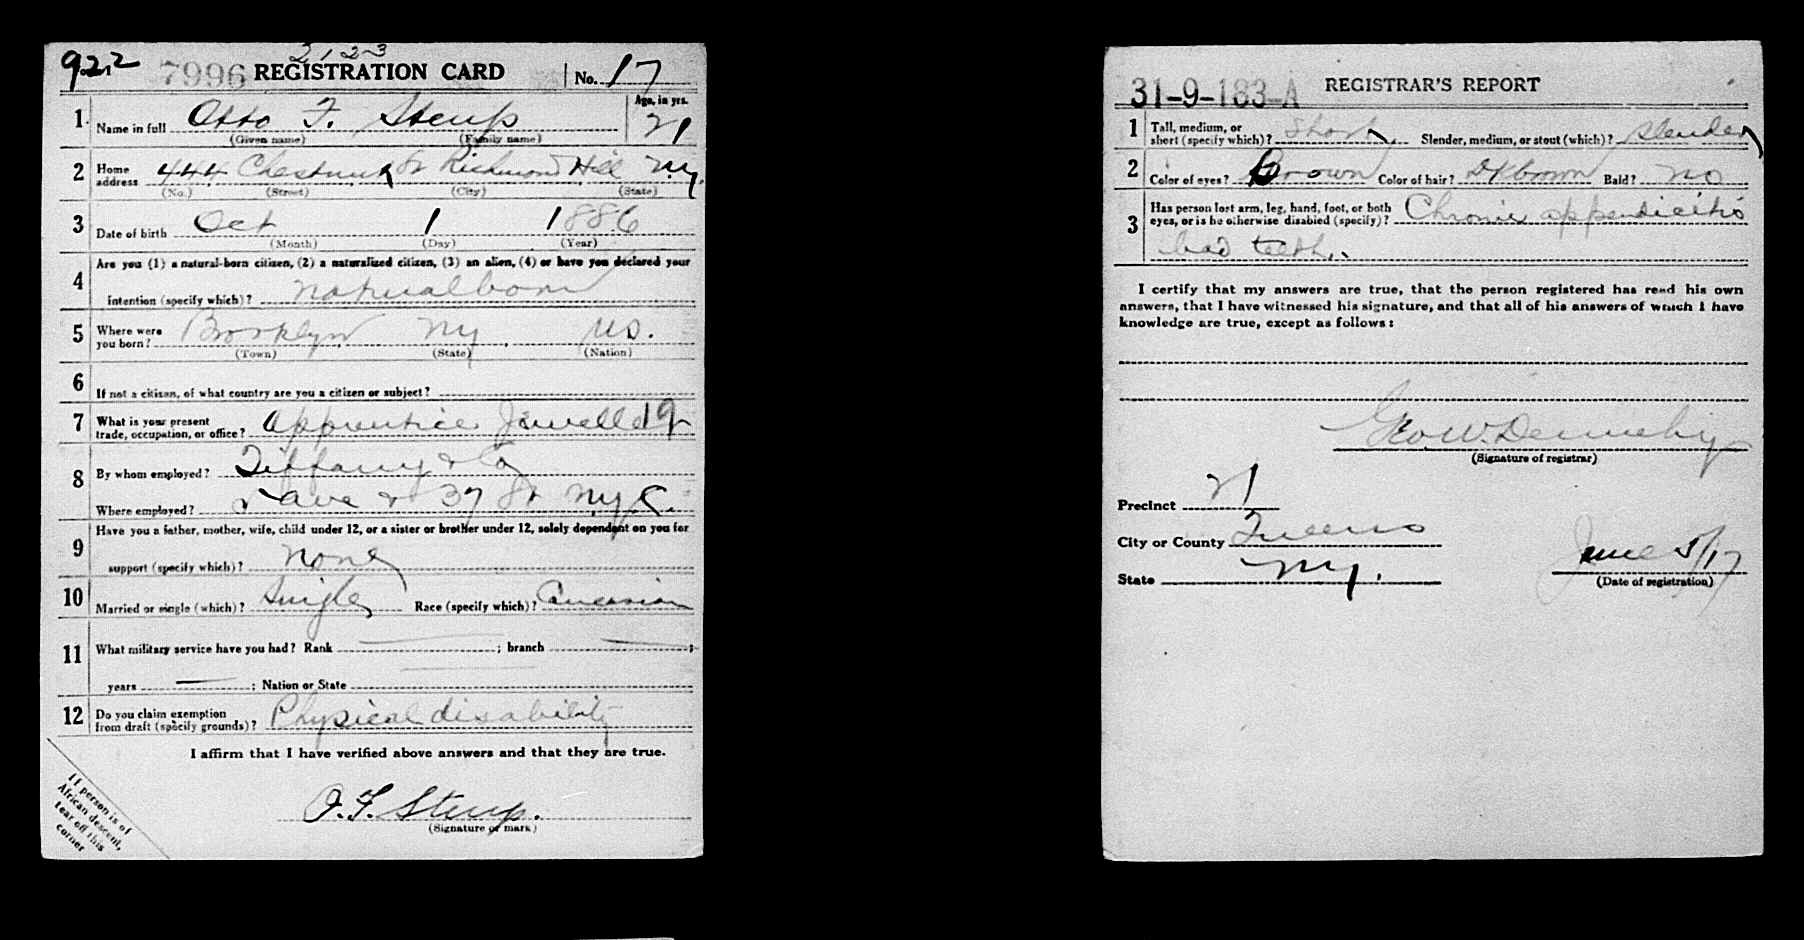 922 7996 2123 REGISTRATION CARD No. 17
1 Name in full Otto F. Sterup Age, in yrs. 21
(Given name) (Family name)
2 Home address 444 Chestnut St Richmond Hill N.Y.
(No.) (Street) (City) (State)
3 Date of birth Oct 1 1886
(Month) (Day) (Year)
4 Are you (1) a natural-born citizen, (2) a naturalized citizen, (3) an alien, (4) or have you declared your
intention (specify which)? natural born
5 Where were you born? Brooklyn NY US.
(Town) (State) (Nation)
6 If not a citizen, of what country are you a citizen or subject?
7 What is your present trade, occupation, or office? Apprentice Jeweller 19
8 By whom employed? Tiffany & Co
Where employed? 5 ave & 37 St N.Y.C.
9 Have you a father, mother, wife, child under 12, or a sister or brother under 12, solely dependent on you for
support (specify which)? none
10 Married or single (which)? Single Race (specify which)? Caucasian
11 What military service have you had? Rank — ; branch — ;
years — ; Nation or State —
12 Do you claim exemption from draft (specify grounds)? Physical disability
I affirm that I have verified above answers and that they are true.
O. F. Sterup.
(Signature or mark)
If person is of
African descent,
tear off this
corner
31-9-183-A REGISTRAR'S REPORT
1 Tall, medium, or short (specify which)? Short Slender, medium, or stout (which)? Slender
2 Color of eyes? Brown Color of hair? Dk brown Bald? No
3 Has person lost arm, leg, hand, foot, or both
eyes, or is he otherwise disabled (specify)? Chronic appendicitis
bad teeth.
I certify that my answers are true, that the person registered has read his own
answers, that I have witnessed his signature, and that all of his answers of which I have
knowledge are true, except as follows:
Geo W. Dennehy
(Signature of registrar)
Precinct 21
City or County Queens
State NY.
June 5/17
(Date of registration)